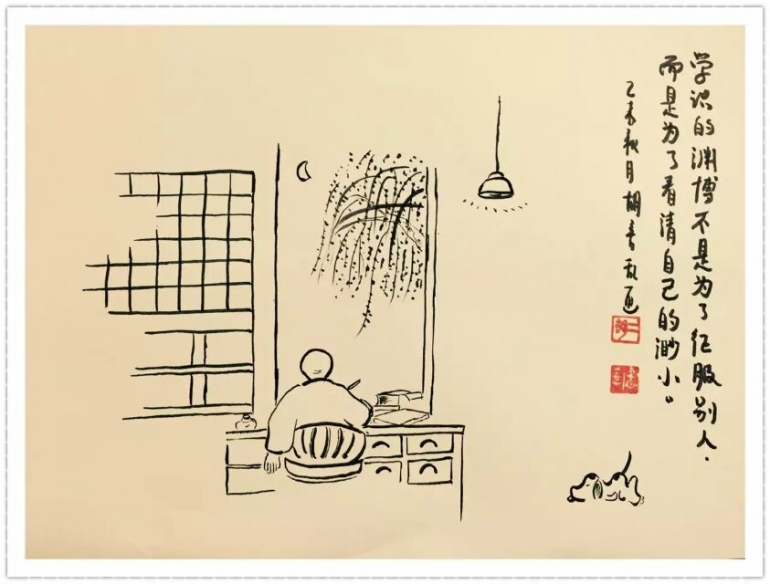 学识的渊博不是为了征服别人.
而是为了看清自己的渺小。
乙未秋月胡言乱画